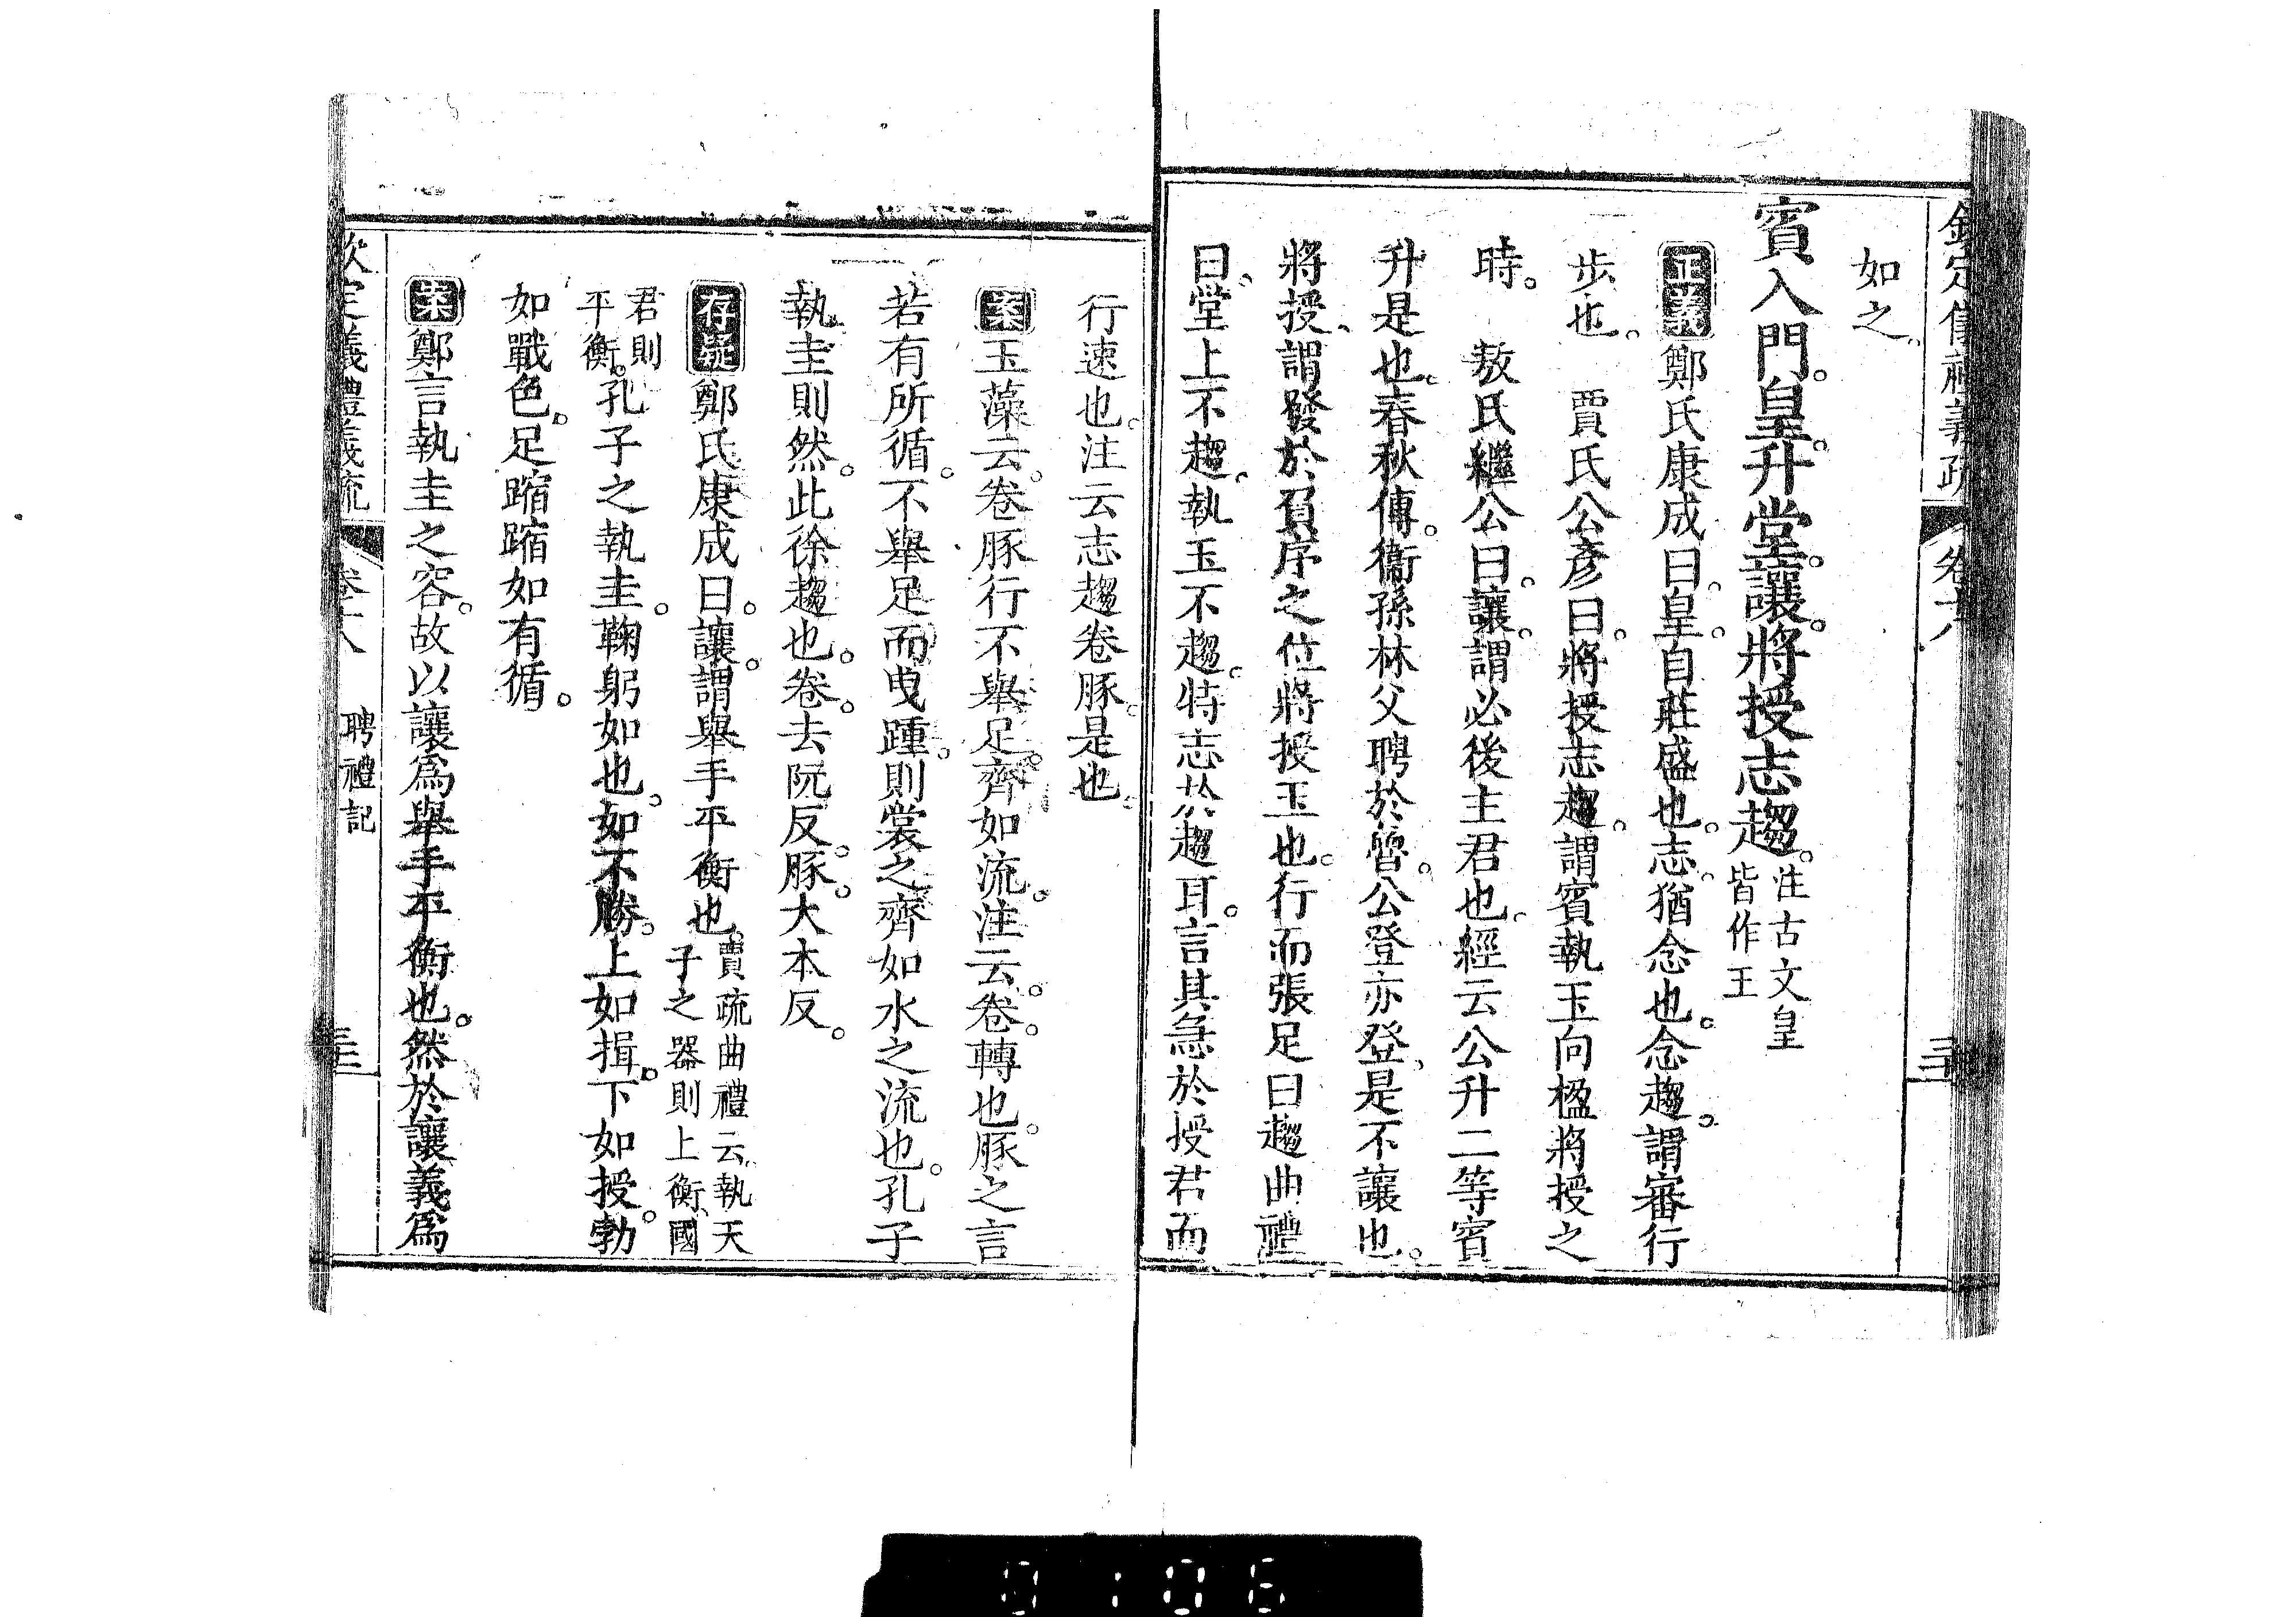 欽定儀禮義疏 卷十八
如之
賓入門。皇。升堂。讓。將授志趨。注古文皇
皆作王
正義鄭氏康成曰。皇。自莊盛也。志。猶念也。念趨。謂審行
步也。 賈氏公彥曰。將授志趨。謂賓執玉向楹將授之
時。 敖氏繼公曰。讓。謂必後主君也。經云公升二等賓
升是也。春秋傳。衞孫林父聘於魯。公登亦登、是不讓也。
將授、謂發於負序之位將授玉也。行而張足曰趨曲禮
曰、堂上不趨。執玉不趨。特志於趨耳。言其急於授君而
行速也。注云志趨卷豚。是也。
案玉藻云。卷豚行不舉足。齊如流。注云。卷。轉也。豚之言
若有所循。不舉足而曳踵。則裳之齊如水之流也。孔子
執圭則然。此徐趨也。卷。去阮反。豚。大本反。
存疑鄭氏康成曰。讓。謂舉手平衡也。賈疏曲禮云執天
子之器則上衡、國
君則
平衡。孔子之執圭。鞠躬如也。如不勝。上如揖。下如授。勃
如戰色。足蹜蹜如有循。
案鄭言執圭之容。故以讓爲舉手平衡也。然於讓義爲
欽定儀禮義疏 卷十八 聘禮記
0106